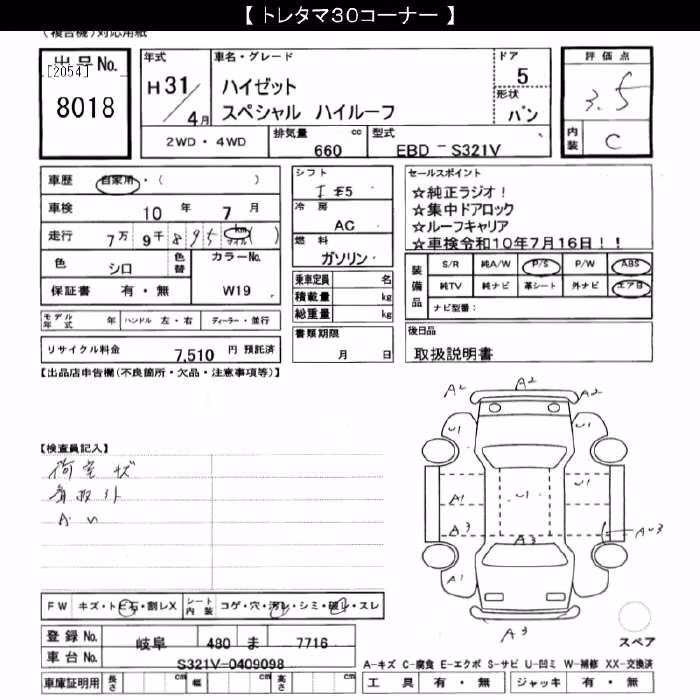 【 トレタマ30コーナー 】
(複合機)対応用紙
出品No.
[2054]
8018
年式
H31/4月
車名・グレード
ハイゼット
スペシャル ハイルーフ
ドア
5
形状
バン
2WD・4WD
排気量 660 cc
型式 EBD-S321V
評価点
3.5
内装 C
車歴 自家用・( )
車検 10年 7月
走行 7万9千895 km マイル ( )
色 シロ 色替
カラーNo. W19
保証書 有・無
シフト
F5
冷房
AC
燃料
ガソリン
乗車定員 名
積載量 kg
総重量 kg
書類期限
月 日
セールスポイント
☆純正ラジオ!
☆集中ドアロック
☆ルーフキャリア
☆車検令和10年7月16日!!
装備品 S/R 純A/W P/S P/W ABS
純TV 純ナビ 革シート 外ナビ エアB
ナビ型番:
モデル年式 年 ハンドル 左・右 ディーラー・並行
リサイクル料金 7,510 円 預託済
後日品
取扱説明書
【出品店申告欄(不良箇所・欠品・注意事項等)】
【検査員記入】
荷室キズ
A2 A2 A2
U1 U1
A1 U1
A3 A3
A1 U1
A3
FW キズ・トビ石・割レX シート内装 コゲ・穴・汚レ・シミ・破レ・スレ
登録No. 岐阜 480 ま 7716
車台No. S321V-0409098
車庫証明用 長さ cm 幅 cm 高さ cm
スペア
A-キズ C-腐食 E-エクボ S-サビ U-凹ミ W-補修 XX-交換済
工具 有・無 ジャッキ 有・無